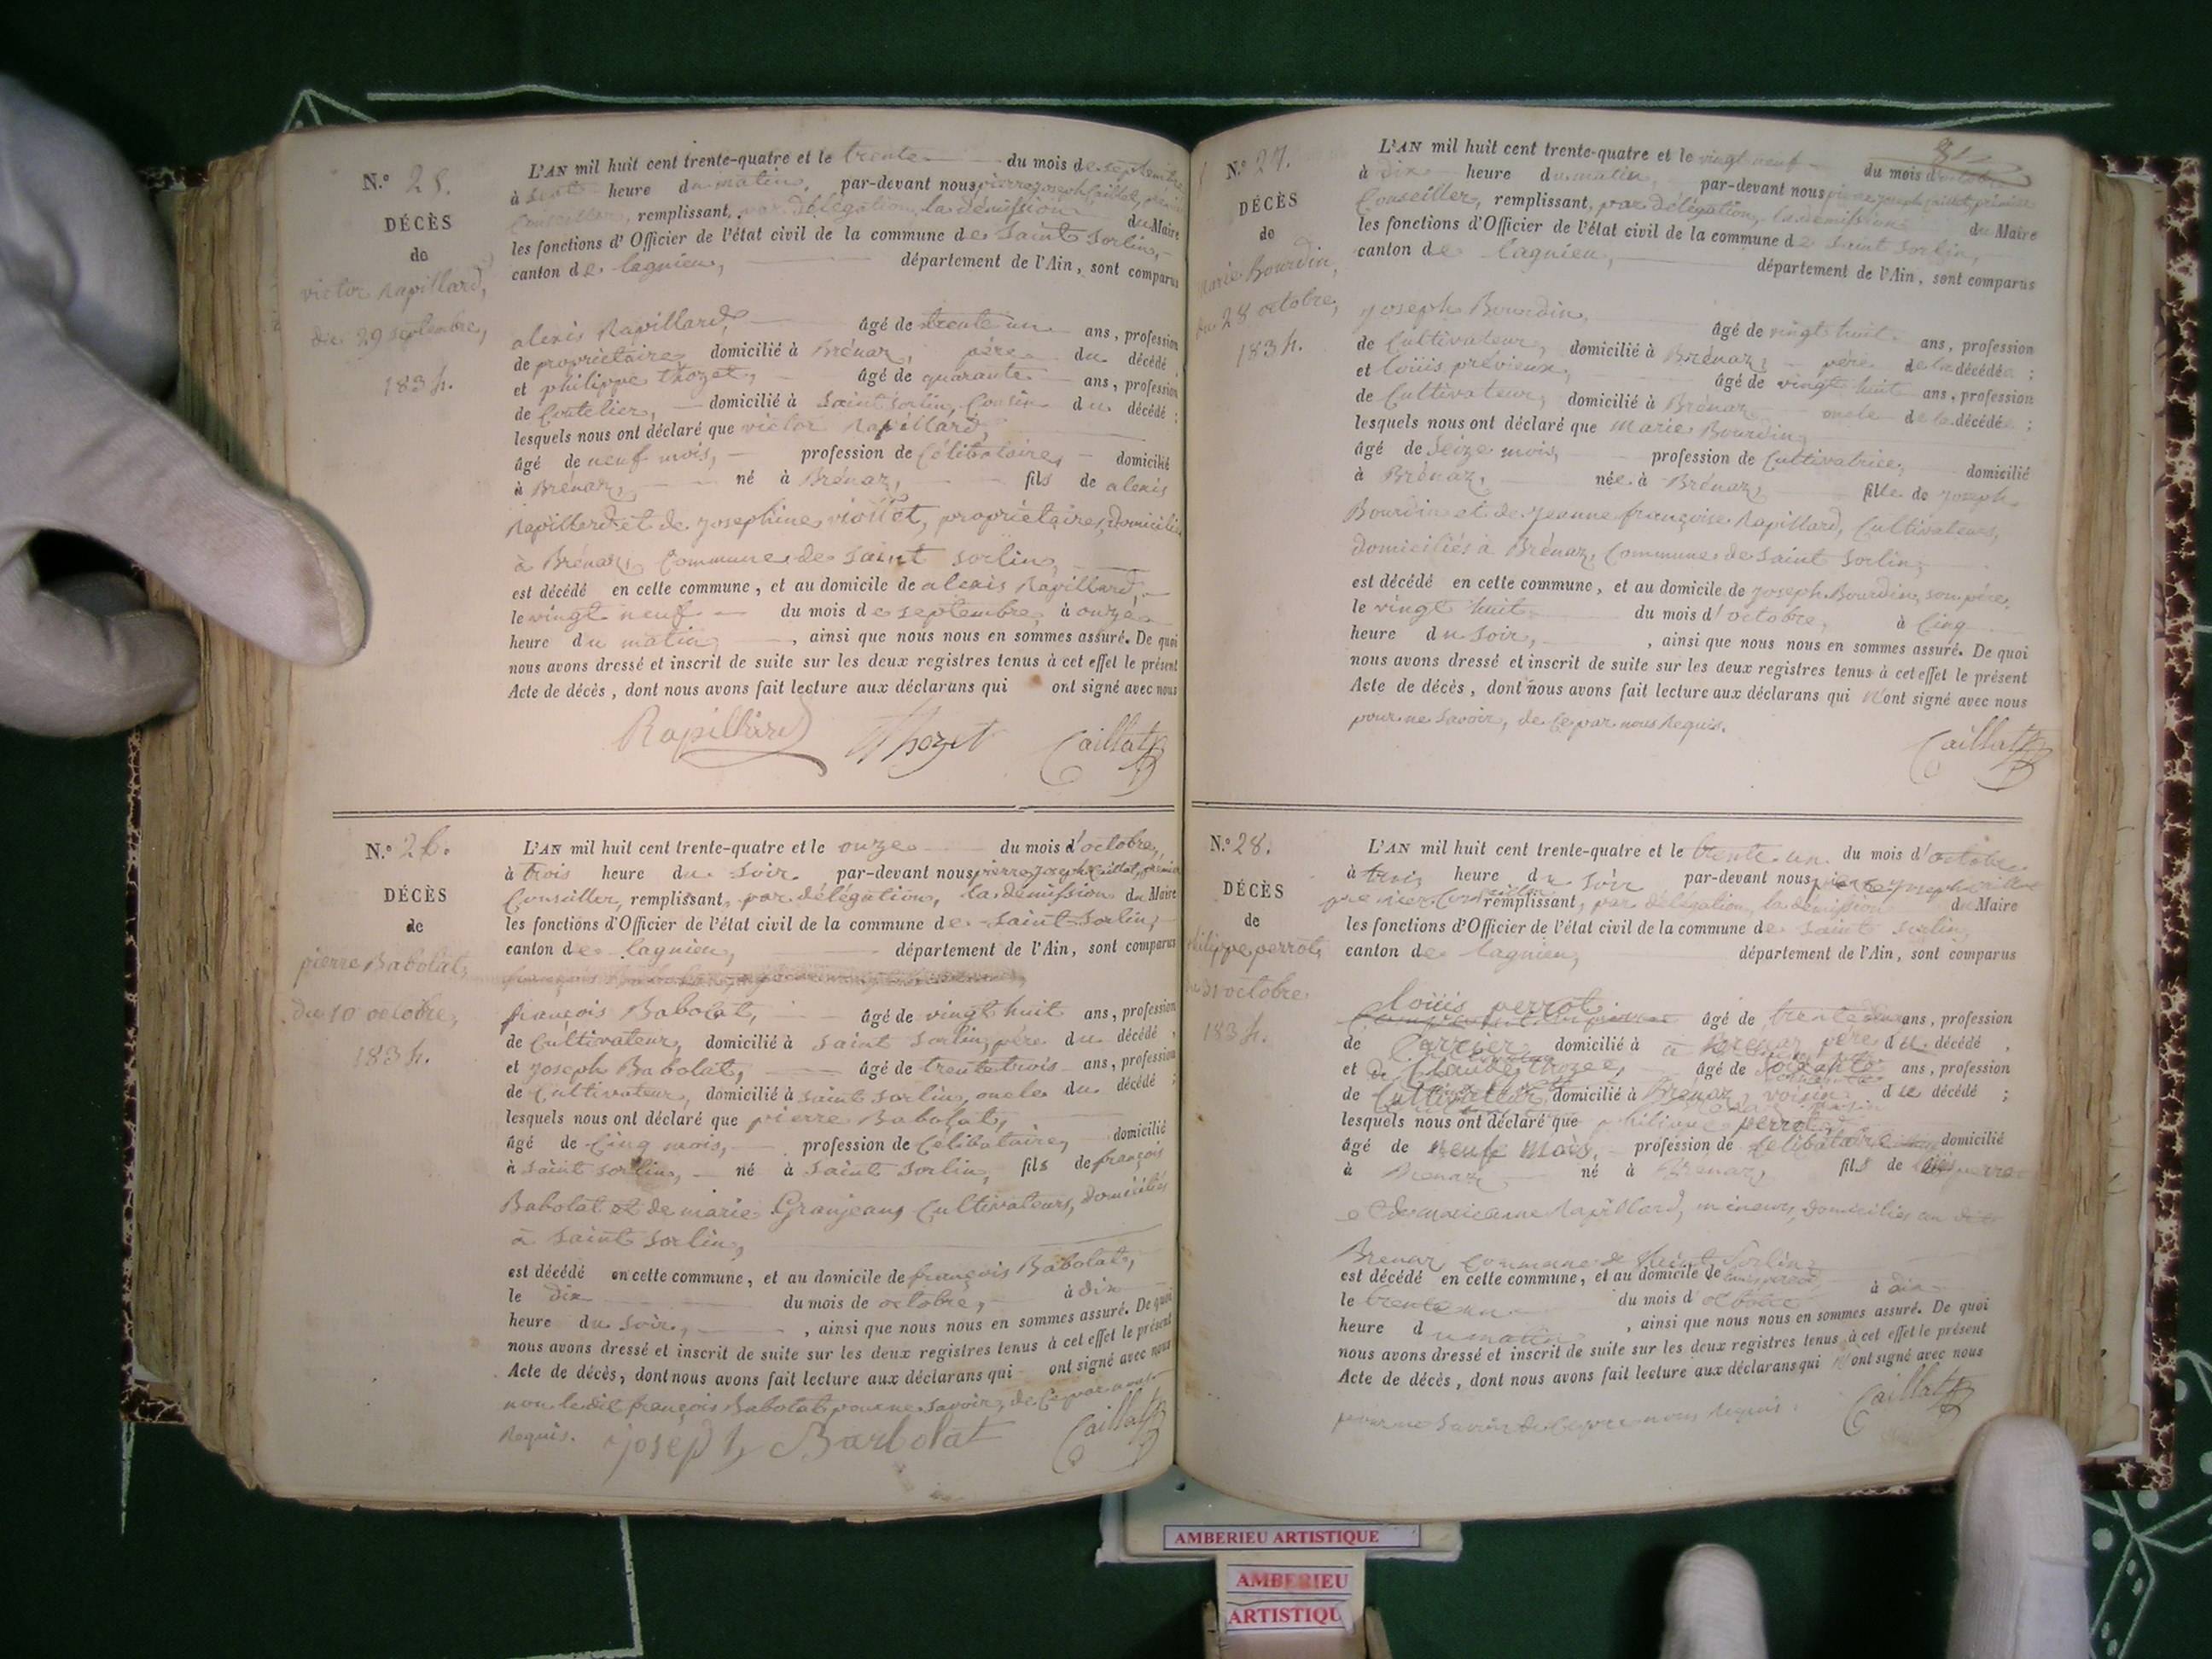 N.º 25.
DÉCÈS
de
victor Rapillard,
du 29 septembre,
1834.
L'AN mil huit cent trente-quatre et le trente du mois de septembre
à sept heure du matin, par-devant nous pierre joseph Caillat, premier
Conseiller, remplissant, par délégation, la démission du Maire
les fonctions d'Officier de l'état civil de la commune de Saint Sorlin,
canton de lagnieu, département de l'Ain, sont comparus
alexis Rapillard, âgé de trente un ans, profession
de propriétaire, domicilié à Brénaz, père du décédé,
et philippe Thozet, âgé de quarante ans, profession
de Coutelier, domicilié à Saint Sorlin, Cousin du décédé ;
lesquels nous ont déclaré que victor Rapillard,
âgé de neuf mois, profession de Célibataire, domicilié
à Brénaz, né à Brénaz, fils de alexis
Rapillard et de josephine viollet, propriétaires, domiciliés
à Brénaz, Commune de Saint Sorlin,
est décédé en cette commune, et au domicile de alexis Rapillard,
le vingt neuf du mois de septembre, à onze
heure du matin, , ainsi que nous nous en sommes assuré. De quoi
nous avons dressé et inscrit de suite sur les deux registres tenus à cet effet le présent
Acte de décès, dont nous avons fait lecture aux déclarans qui ont signé avec nous
Rapillard Thozet Caillat
N.º 26.
DÉCÈS
de
pierre Babolat,
du 10 octobre,
1834.
L'AN mil huit cent trente-quatre et le onze du mois d'octobre,
à trois heure du soir, par-devant nous pierre joseph Caillat, premier
Conseiller, remplissant, par délégation, la démission du Maire
les fonctions d'Officier de l'état civil de la commune de Saint-Sorlin,
canton de lagnieu, département de l'Ain, sont comparus
françois Babolat, âgé de vingt huit ans, profession
de Cultivateur, domicilié à Saint Sorlin, père du décédé,
et joseph Babolat, âgé de trente trois ans, profession
de Cultivateur, domicilié à Saint Sorlin, oncle du décédé ;
lesquels nous ont déclaré que pierre Babolat,
âgé de Cinq mois, profession de Célibataire, domicilié
à Saint Sorlin, né à Saint Sorlin, fils de françois
Babolat et de marie Granjean, Cultivateurs, domiciliés
à Saint Sorlin,
est décédé en cette commune, et au domicile de françois Babolat,
le dix du mois de octobre, à dix
heure du soir, , ainsi que nous nous en sommes assuré. De quoi
nous avons dressé et inscrit de suite sur les deux registres tenus à cet effet le présent
Acte de décès, dont nous avons fait lecture aux déclarans qui ont signé avec nous
non le dit françois Babolat pour ne savoir, de ce par nous
Requis. joseph Barbolat Caillat
81
N.º 27.
DÉCÈS
de
Marie Bourdin,
du 28 octobre,
1834.
L'AN mil huit cent trente-quatre et le vingt neuf du mois d'octobre
à dix heure du matin, par-devant nous pierre joseph Caillat, premier
Conseiller, remplissant, par délégation, la démission du Maire
les fonctions d'Officier de l'état civil de la commune de Saint Sorlin,
canton de lagnieu, département de l'Ain, sont comparus
joseph Bourdin, âgé de vingt huit ans, profession
de Cultivateur, domicilié à Brénaz, père de la décédée ;
et Louis prévieux, âgé de vingt huit ans, profession
de Cultivateur, domicilié à Brénaz oncle de la décédée ;
lesquels nous ont déclaré que Marie Bourdin,
âgé de Seize mois, profession de Cultivatrice, domicilié
à Brénaz, née à Brénaz, fille de joseph
Bourdin et de jeanne françoise Rapillard, Cultivateurs,
domiciliés à Brénaz, Commune de Saint Sorlin,
est décédé en cette commune, et au domicile de joseph Bourdin, son père,
le vingt huit du mois d'octobre, à Cinq
heure du soir, , ainsi que nous nous en sommes assuré. De quoi
nous avons dressé et inscrit de suite sur les deux registres tenus à cet effet le présent
Acte de décès, dont nous avons fait lecture aux déclarans qui n'ont signé avec nous
pour ne savoir, de ce par nous Requis.
Caillat
N.º 28.
DÉCÈS
de
philippe perrot,
du 31 octobre
1834.
L'AN mil huit cent trente-quatre et le trente un du mois d'octobre
à trois heure du soir par-devant nous pierre joseph Caillat
premier Conseiller remplissant, par délégation, la démission du Maire
les fonctions d'Officier de l'état civil de la commune de Saint Sorlin,
canton de lagnieu, département de l'Ain, sont comparus
Louis perrot
âgé de trente ans, profession
de domicilié à Brenaz père du décédé,
et Claude thozet, âgé de soixante ans, profession
de Cultivateur domicilié à Brenaz, voisin du décédé ;
lesquels nous ont déclaré que philippe perrot
âgé de neuf mois, profession de célibataire domicilié
à Brenaz né à Brenaz, fils de
et de Rapillard, mineurs, domiciliés au dit
Brenaz Commune de Saint Sorlin,
est décédé en cette commune, et au domicile de
le trente un du mois d'octobre à dix
heure du matin , ainsi que nous nous en sommes assuré. De quoi
nous avons dressé et inscrit de suite sur les deux registres tenus à cet effet le présent
Acte de décès, dont nous avons fait lecture aux déclarans qui n'ont signé avec nous
pour ne savoir de ce par nous Requis.
Caillat
AMBERIEU ARTISTIQUE
AMBERIEU
ARTISTIQU